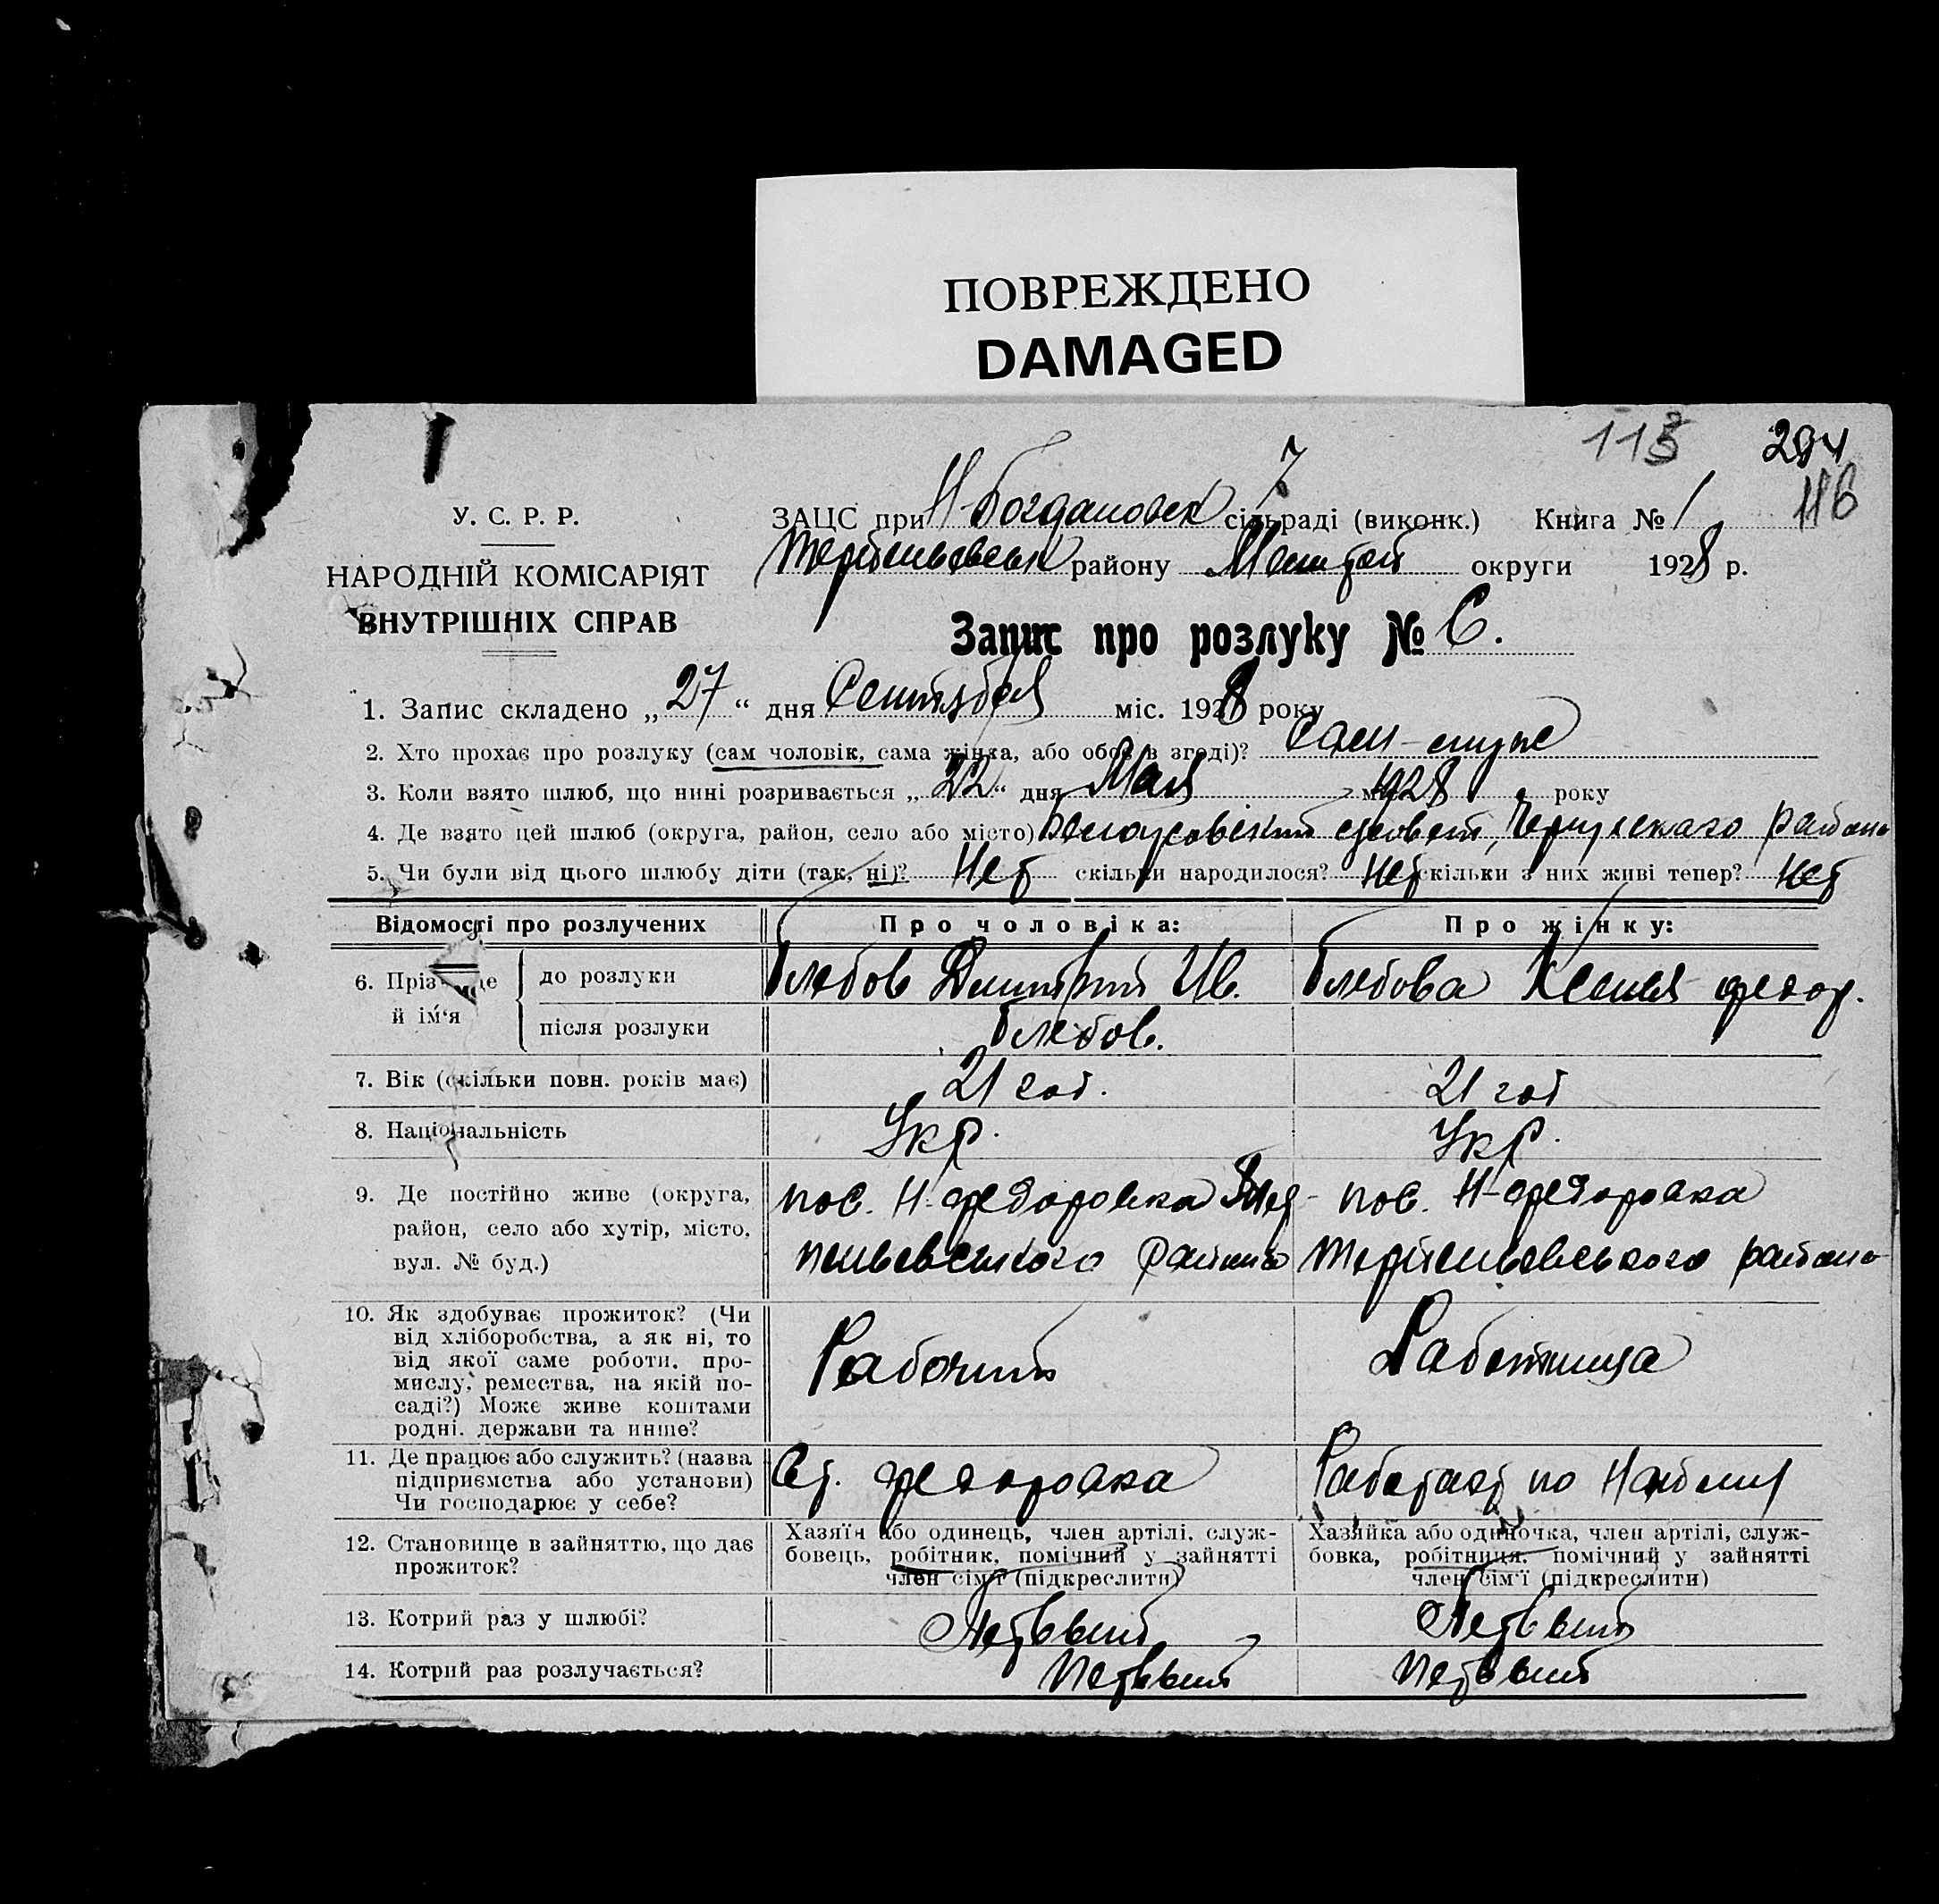 ПОВРЕЖДЕНО
DAMAGED
113 294
116
У. С. Р. Р.
НАРОДНІЙ КОМІСАРІЯТ
ВНУТРІШНІХ СПРАВ
ЗАЦС при Н-Богдановск сільраді (виконк.) Книга № 1
району округи 1928 р.
Запис про розлуку № 6.
1. Запис складено „27“ дня Сентября міс. 1928 року
2. Хто прохає про розлуку (сам чоловік, сама жінка, або обоє в згоді)? Сам-муж
3. Коли взято шлюб, що нині розривається „22“ дня Мая міс. 1928 року
4. Де взято цей шлюб (округа, район, село або місто) совет, района
5. Чи були від цього шлюбу діти (так, ні)? Нет скільки народилося? Нет скільки з них живі тепер? Нет
Відомості про розлучених Про чоловіка: Про жінку:
6. Прізвище й ім'я
до розлуки Глебов Дмитрий Ив. Глебова Ксения Федор.
після розлуки Глебов.
7. Вік (скільки повн. років має) 21 год. 21 год
8. Національність Укр. Укр.
9. Де постійно живе (округа, район, село або хутір, місто, вул. № буд.)
пос. Н-Федоровка района
пос. Н-Федоровка района
10. Як здобуває прожиток? (Чи
від хліборобства, а як ні, то
від якої саме роботи, про-
мислу, ремества, на якій по-
саді?) Може живе коштами
родні, держави та инше?
Рабочий Работница
11. Де працює або служить? (назва
підприємства або установи)
Чи господарює у себе?
Ст. Федоровка Работает по Найму
12. Становище в зайняттю, що дає
прожиток?
Хазяїн або одинець, член артілі, служ-
бовець, робітник, помічний у зайнятті
член сім'ї (підкреслити)
Хазяйка або одиночка, член артілі, служ-
бовка, робітниця, помічний у зайнятті
член сім'ї (підкреслити)
13. Котрий раз у шлюбі? Первый Первый
14. Котрий раз розлучається? Первый Первый